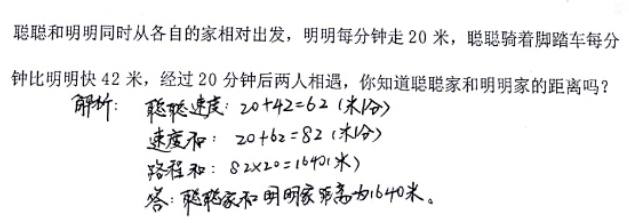 聪聪和明明同时从各自的家相对出发，明明每分钟走 20 米，聪聪骑着脚踏车每分
钟比明明快 42 米，经过 20 分钟后两人相遇，你知道聪聪家和明明家的距离吗？
解析： 聪聪速度：20+42=62（米/分）
速度和：20+62=82（米/分）
路程和：82×20=1640（米）
答：聪聪家和明明家距离为1640米。